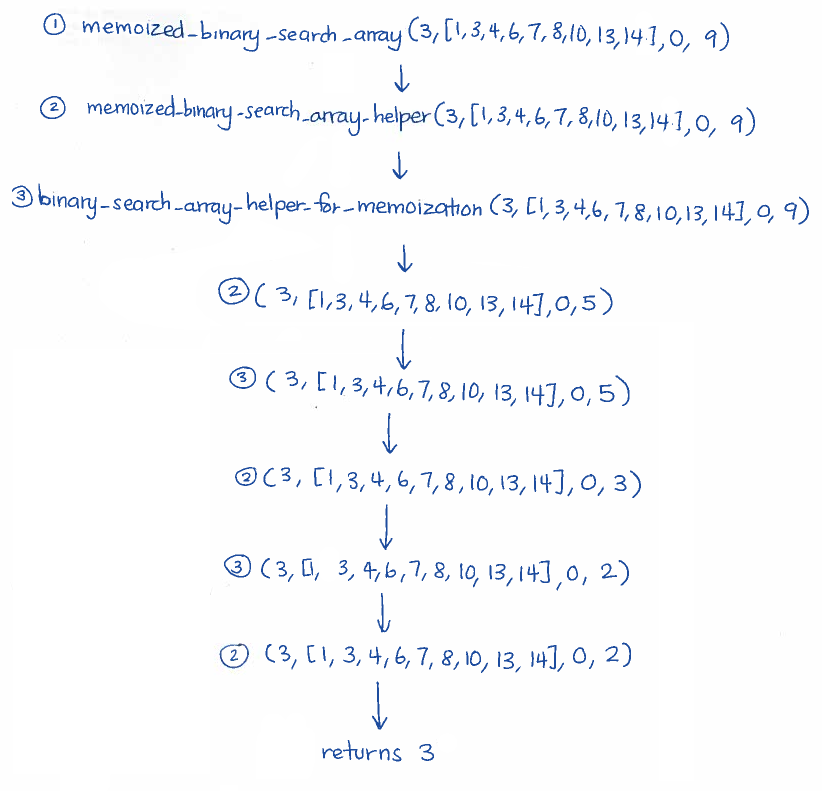 ① memoized_binary_search_array (3, [1,3,4,6,7,8,10,13,14], 0, 9)
② memoized_binary_search_array_helper (3, [1,3,4,6,7,8,10,13,14], 0, 9)
③ binary_search_array_helper_for_memoization (3, [1,3,4,6,7,8,10,13,14], 0, 9)
② (3, [1,3,4,6,7,8,10,13,14], 0, 5)
③ (3, [1,3,4,6,7,8,10,13,14], 0, 5)
② (3, [1,3,4,6,7,8,10,13,14], 0, 3)
③ (3, [1, 3,4,6,7,8,10,13,14], 0, 2)
② (3, [1,3,4,6,7,8,10,13,14], 0, 2)
returns 3